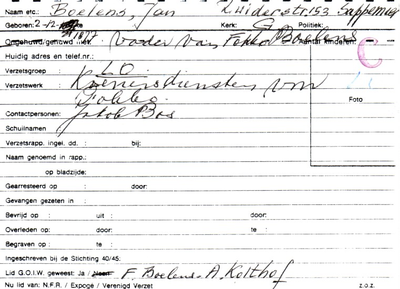 Naam etc.: Boelens, Jan K. Widerstr. 153 Sappemeer
Geboren: 2-12-1877 Kerk: G Politiek:
Ongehuwd/gehuwd met: Vader van Fokko Boelens Aantal kinderen:
Huidig adres en telef.nr.:
Verzetsgroep : L.O.
Verzetswerk : Koeriersdiensten voor
Fokko.
Foto
Contactpersonen: Jakob Bos
Schuilnaam
Verzetsrapp. ingel. dd. : bij:
Naam genoemd in rapp.:
op bladzijde:
Gearresteerd op : door:
Gevangen gezeten in :
Bevrijd op : uit : door:
Overleden op: door: te :
Begraven op : te :
Ingeschreven bij de Stichting 40/45:
Lid G.O.I.W. geweest: Ja / Neen F. Boelens - A. Kolthof
Nu lid van: N.F.R. / Expogé / Verenigd Verzet z.o.z.